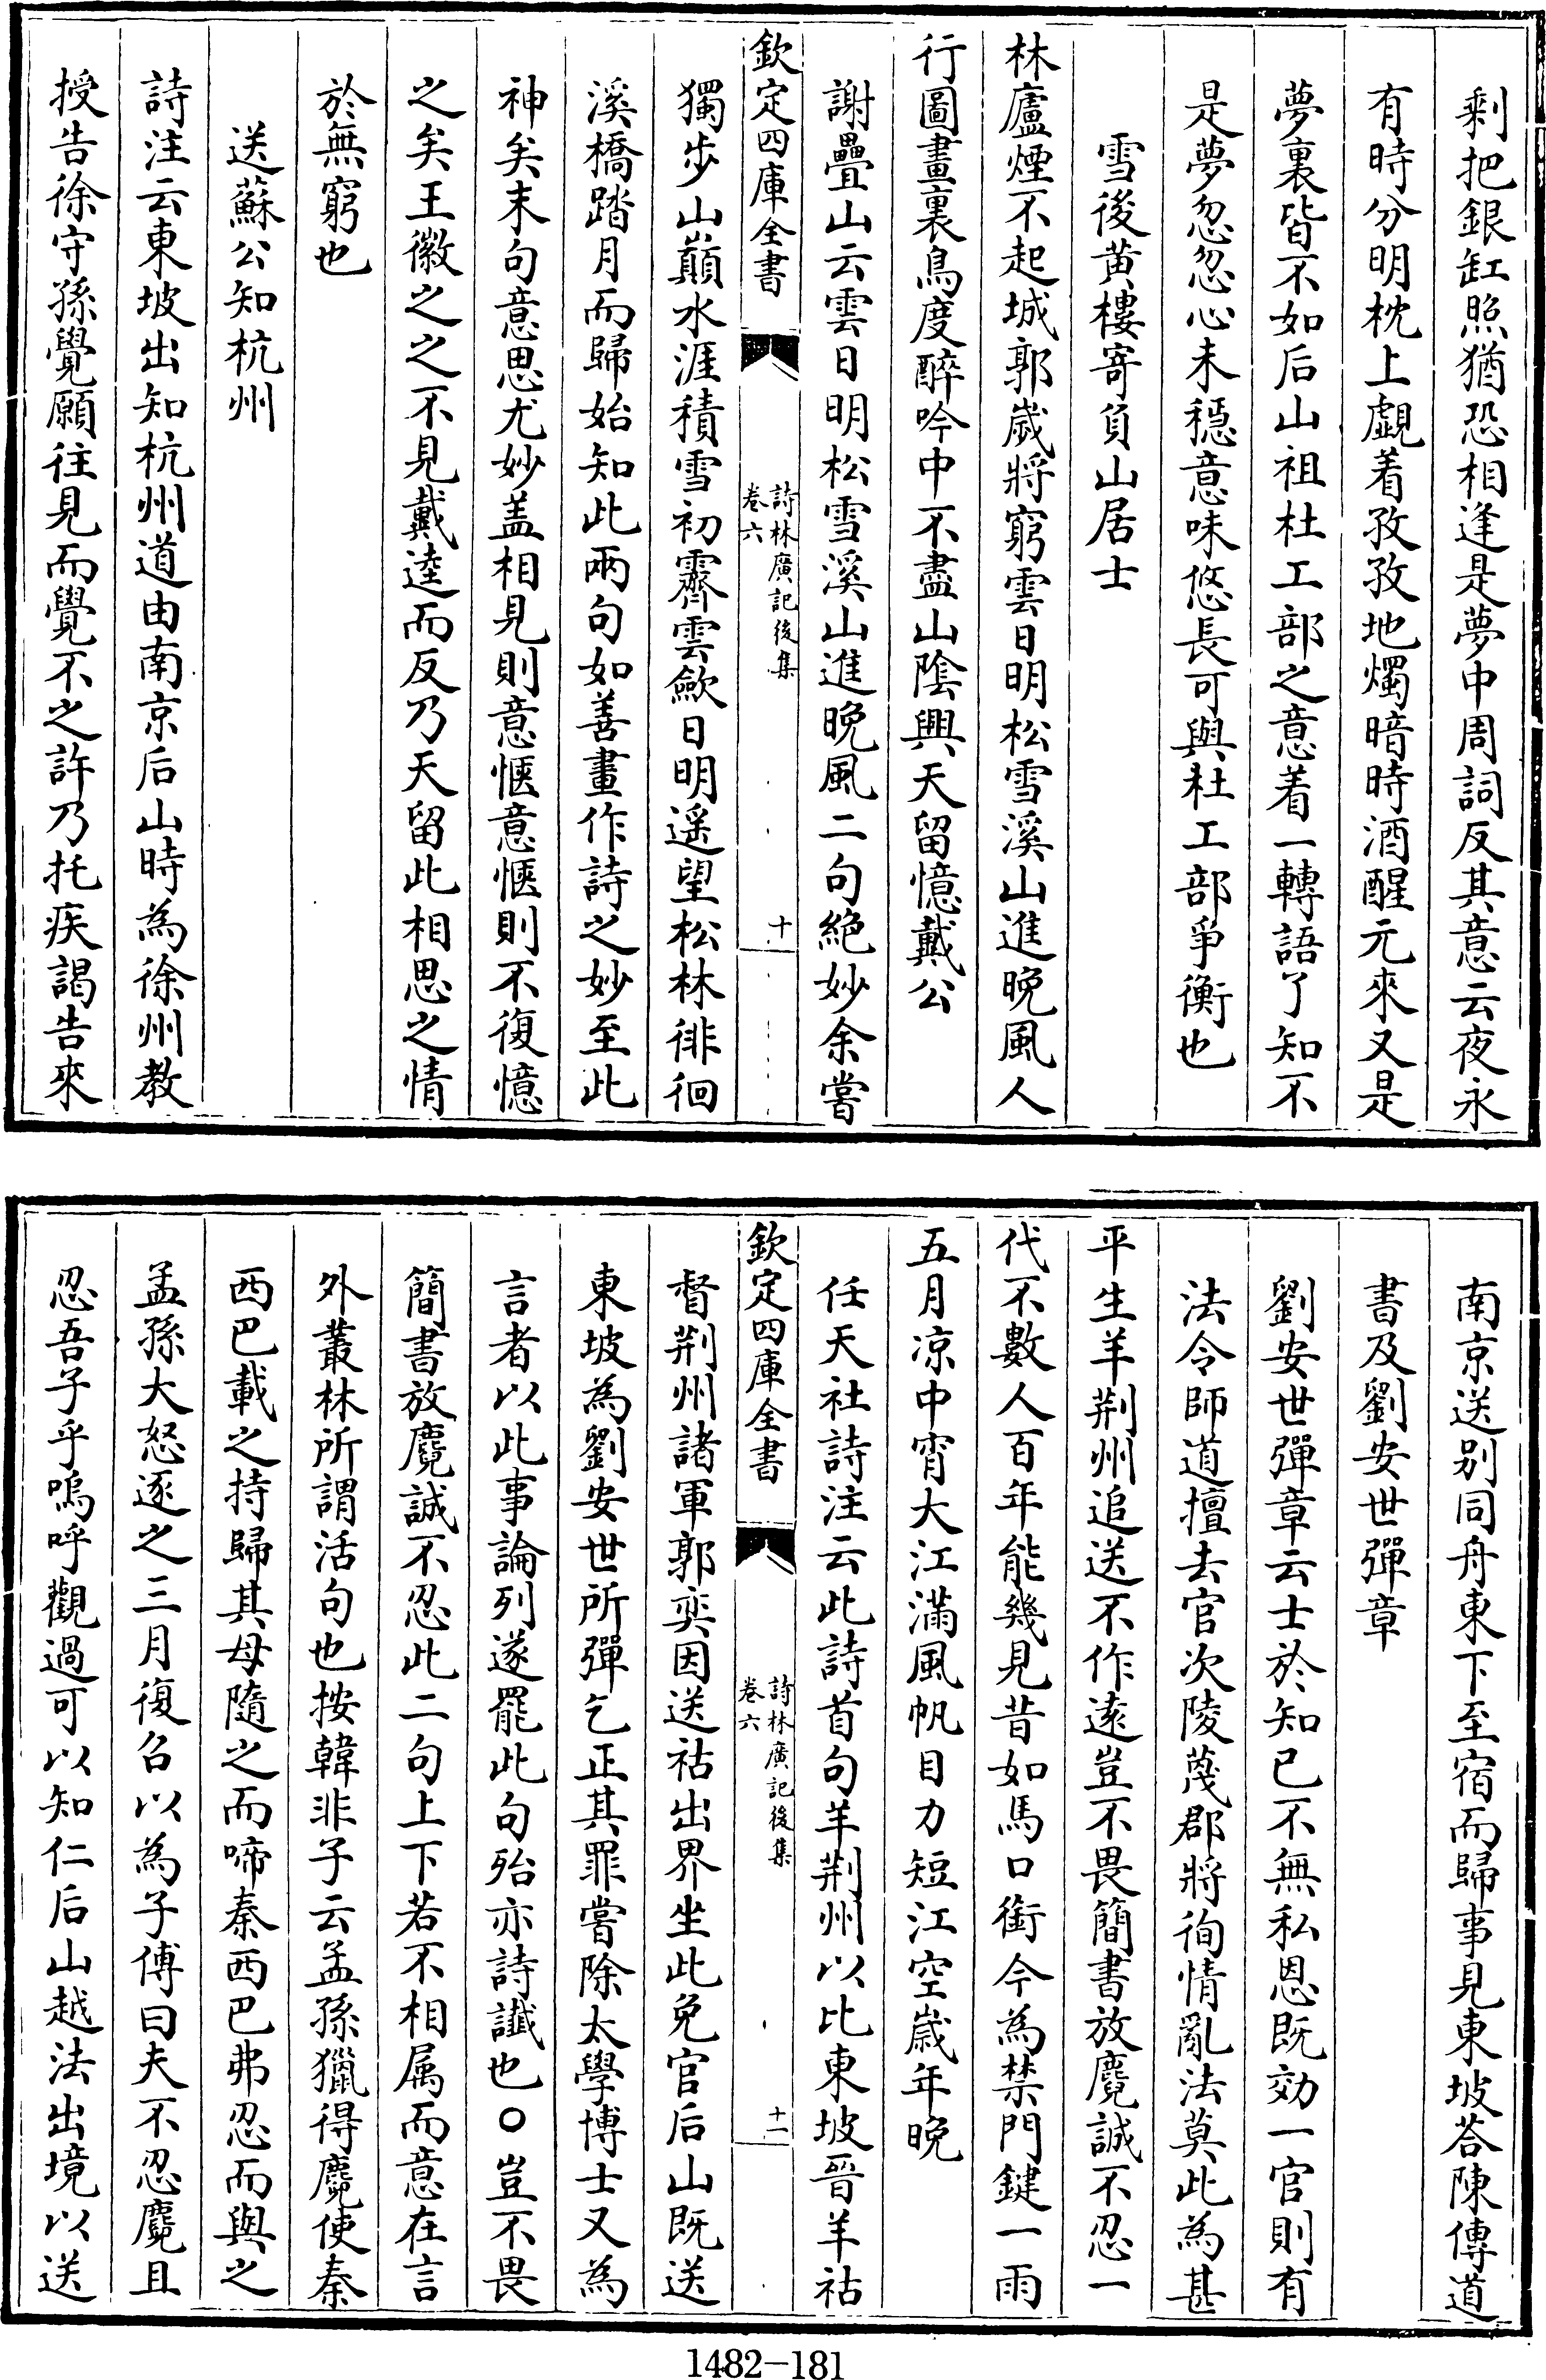 剩把銀缸照猶恐相逢是夢中周詞反其意云夜永
有時分明枕上覷着孜孜地燭暗時酒醒元來又是
夢裏皆不如后山祖杜工部之意着一轉語了知不
是夢忽忽心未穩意味悠長可與杜工部爭衡也
雪後黄樓寄負山居士
林廬煙不起城郭歲將窮雲日明松雪溪山進晚風人
行圖畫裏鳥度醉吟中不盡山陰興天留憶戴公
謝疊山云雲日明松雪溪山進晚風二句絶妙余嘗
欽定四庫全書
詩林廣記後集
卷六
十
獨步山巔水涯積雪初霽雲歛日明遥望松林徘徊
溪橋踏月而歸始知此兩句如善畫作詩之妙至此
神矣末句意思尤妙盖相見則意愜意愜則不復憶
之矣王徽之之不見戴逵而反乃天留此相思之情
於無窮也
送蘇公知杭州
詩注云東坡出知杭州道由南京后山時為徐州教
授告徐守孫覺願往見而覺不之許乃托疾謁告來
南京送别同舟東下至宿而歸事見東坡荅陳傳道
書及劉安世彈章
劉安世彈章云士於知已不無私恩既効一官則有
法令師道擅去官次陵蔑郡將徇情亂法莫此為甚
平生羊荆州追送不作遠豈不畏簡書放麑誠不忍一
代不數人百年能幾見昔如馬口銜今為禁門鍵一雨
五月凉中宵大江滿風帆目力短江空歲年晚
任天社詩注云此詩首句羊荆州以比東坡晋羊祜
欽定四庫全書
詩林廣記後集
卷六
十一
督荆州諸軍郭奕因送祜出界坐此免官后山既送
東坡為劉安世所彈乞正其罪嘗除太學博士又為
言者以此事論列遂罷此句殆亦詩讖也○豈不畏
簡書放麑誠不忍此二句上下若不相属而意在言
外叢林所謂活句也按韓非子云孟孫獵得麑使秦
西巴載之持歸其母隨之而啼秦西巴弗忍而與之
孟孫大怒逐之三月復召以為子傅曰夫不忍麑且
忍吾子乎嗚呼觀過可以知仁后山越法出境以送
1482-181